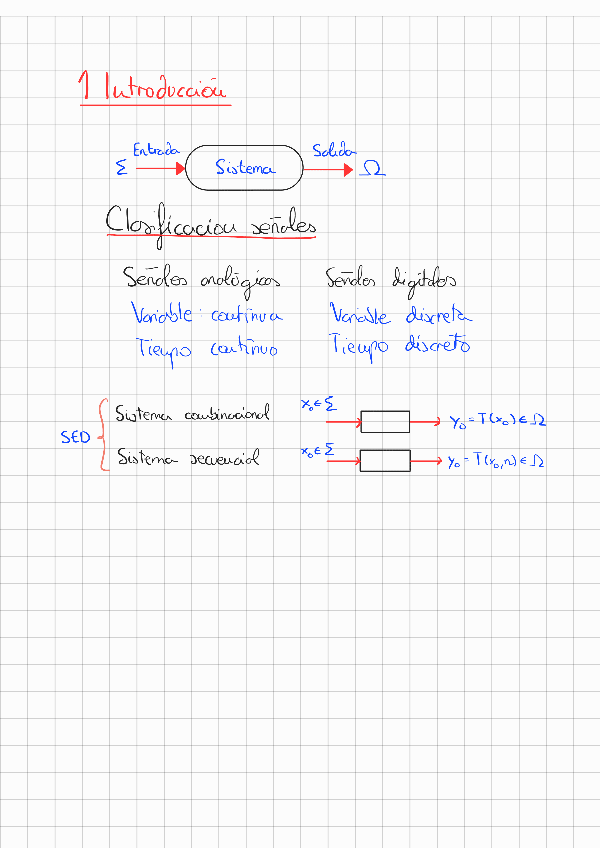 1 Introducción
Σ Entrada Sistema Salida Ω
Clasificacion señales
Señales analógicas Señales digitales
Variable continua Variable discreta
Tiempo continuo Tiempo discreto
SED
Sistema combinacional x₀ ∈ Σ y₀ = T(x₀) ∈ Ω
Sistema secuencial x₀ ∈ Σ y₀ = T(x₀, n) ∈ Ω